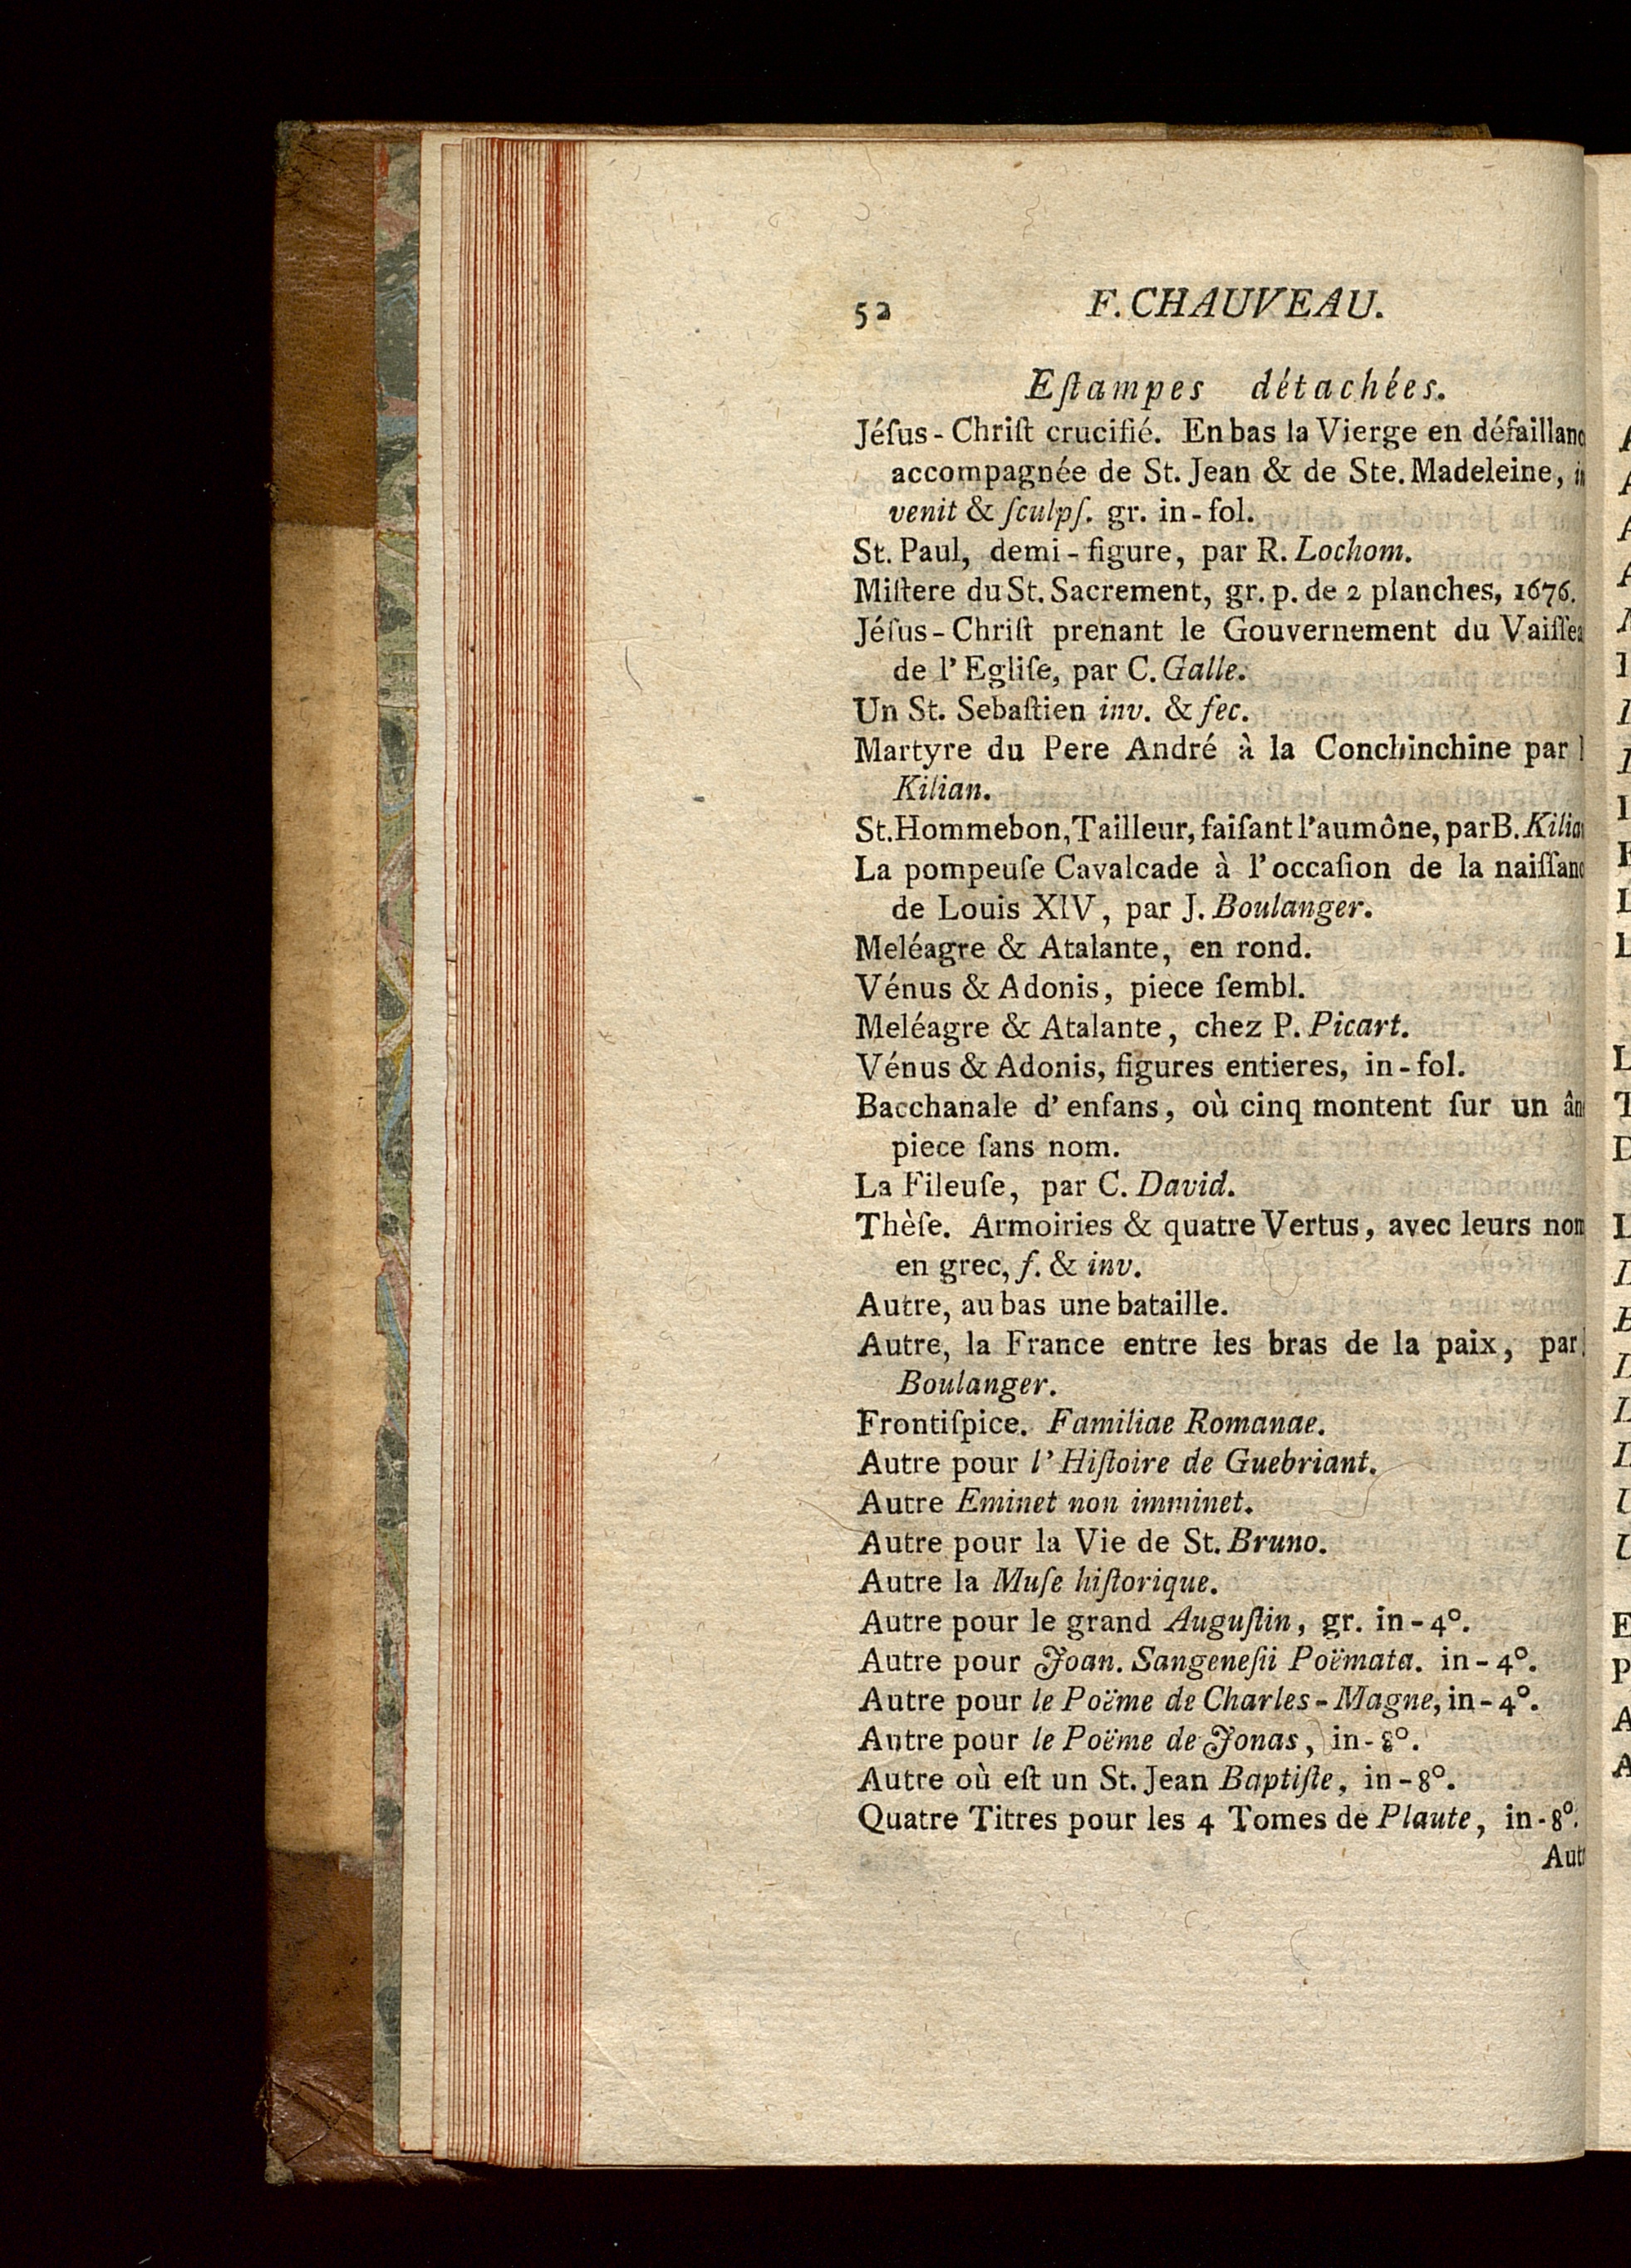 52 F. CHAUVEAU.
Eſtampes détachées.
Jéſus-Chriſt crucifié. En bas la Vierge en défaillanc
accompagnée de St. Jean & de Ste. Madeleine, in
venit & ſculpſ. gr. in-fol.
St. Paul, demi-figure, par R. Lochom.
Miſtere du St. Sacrement, gr. p. de 2 planches, 1676.
Jéſus-Chriſt prenant le Gouvernement du Vaiſſea
de l'Egliſe, par C. Galle.
Un St. Sebaſtien inv. & fec.
Martyre du Pere André à la Conchinchine par
Kilian.
St. Hommebon, Tailleur, faiſant l'aumône, par B. Kilian
La pompeuſe Cavalcade à l'occaſion de la naiſſanc
de Louis XIV, par J. Boulanger.
Meléagre & Atalante, en rond.
Vénus & Adonis, piece ſembl.
Meléagre & Atalante, chez P. Picart.
Vénus & Adonis, figures entieres, in-fol.
Bacchanale d'enfans, où cinq montent ſur un ân
piece ſans nom.
La Fileuſe, par C. David.
Thèſe. Armoiries & quatre Vertus, avec leurs nom
en grec, f. & inv.
Autre, au bas une bataille.
Autre, la France entre les bras de la paix, par
Boulanger.
Frontiſpice. Familiae Romanae.
Autre pour l'Hiſtoire de Guebriant.
Autre Eminet non imminet.
Autre pour la Vie de St. Bruno.
Autre la Muſe hiſtorique.
Autre pour le grand Auguſtin, gr. in-4°.
Autre pour Joan. Sangeneſii Poëmata. in-4°.
Autre pour le Poëme de Charles-Magne, in-4°.
Autre pour le Poëme de Jonas, in-8°.
Autre où eſt un St. Jean Baptiſte, in-8°.
Quatre Titres pour les 4 Tomes de Plaute, in-8°.
Autr